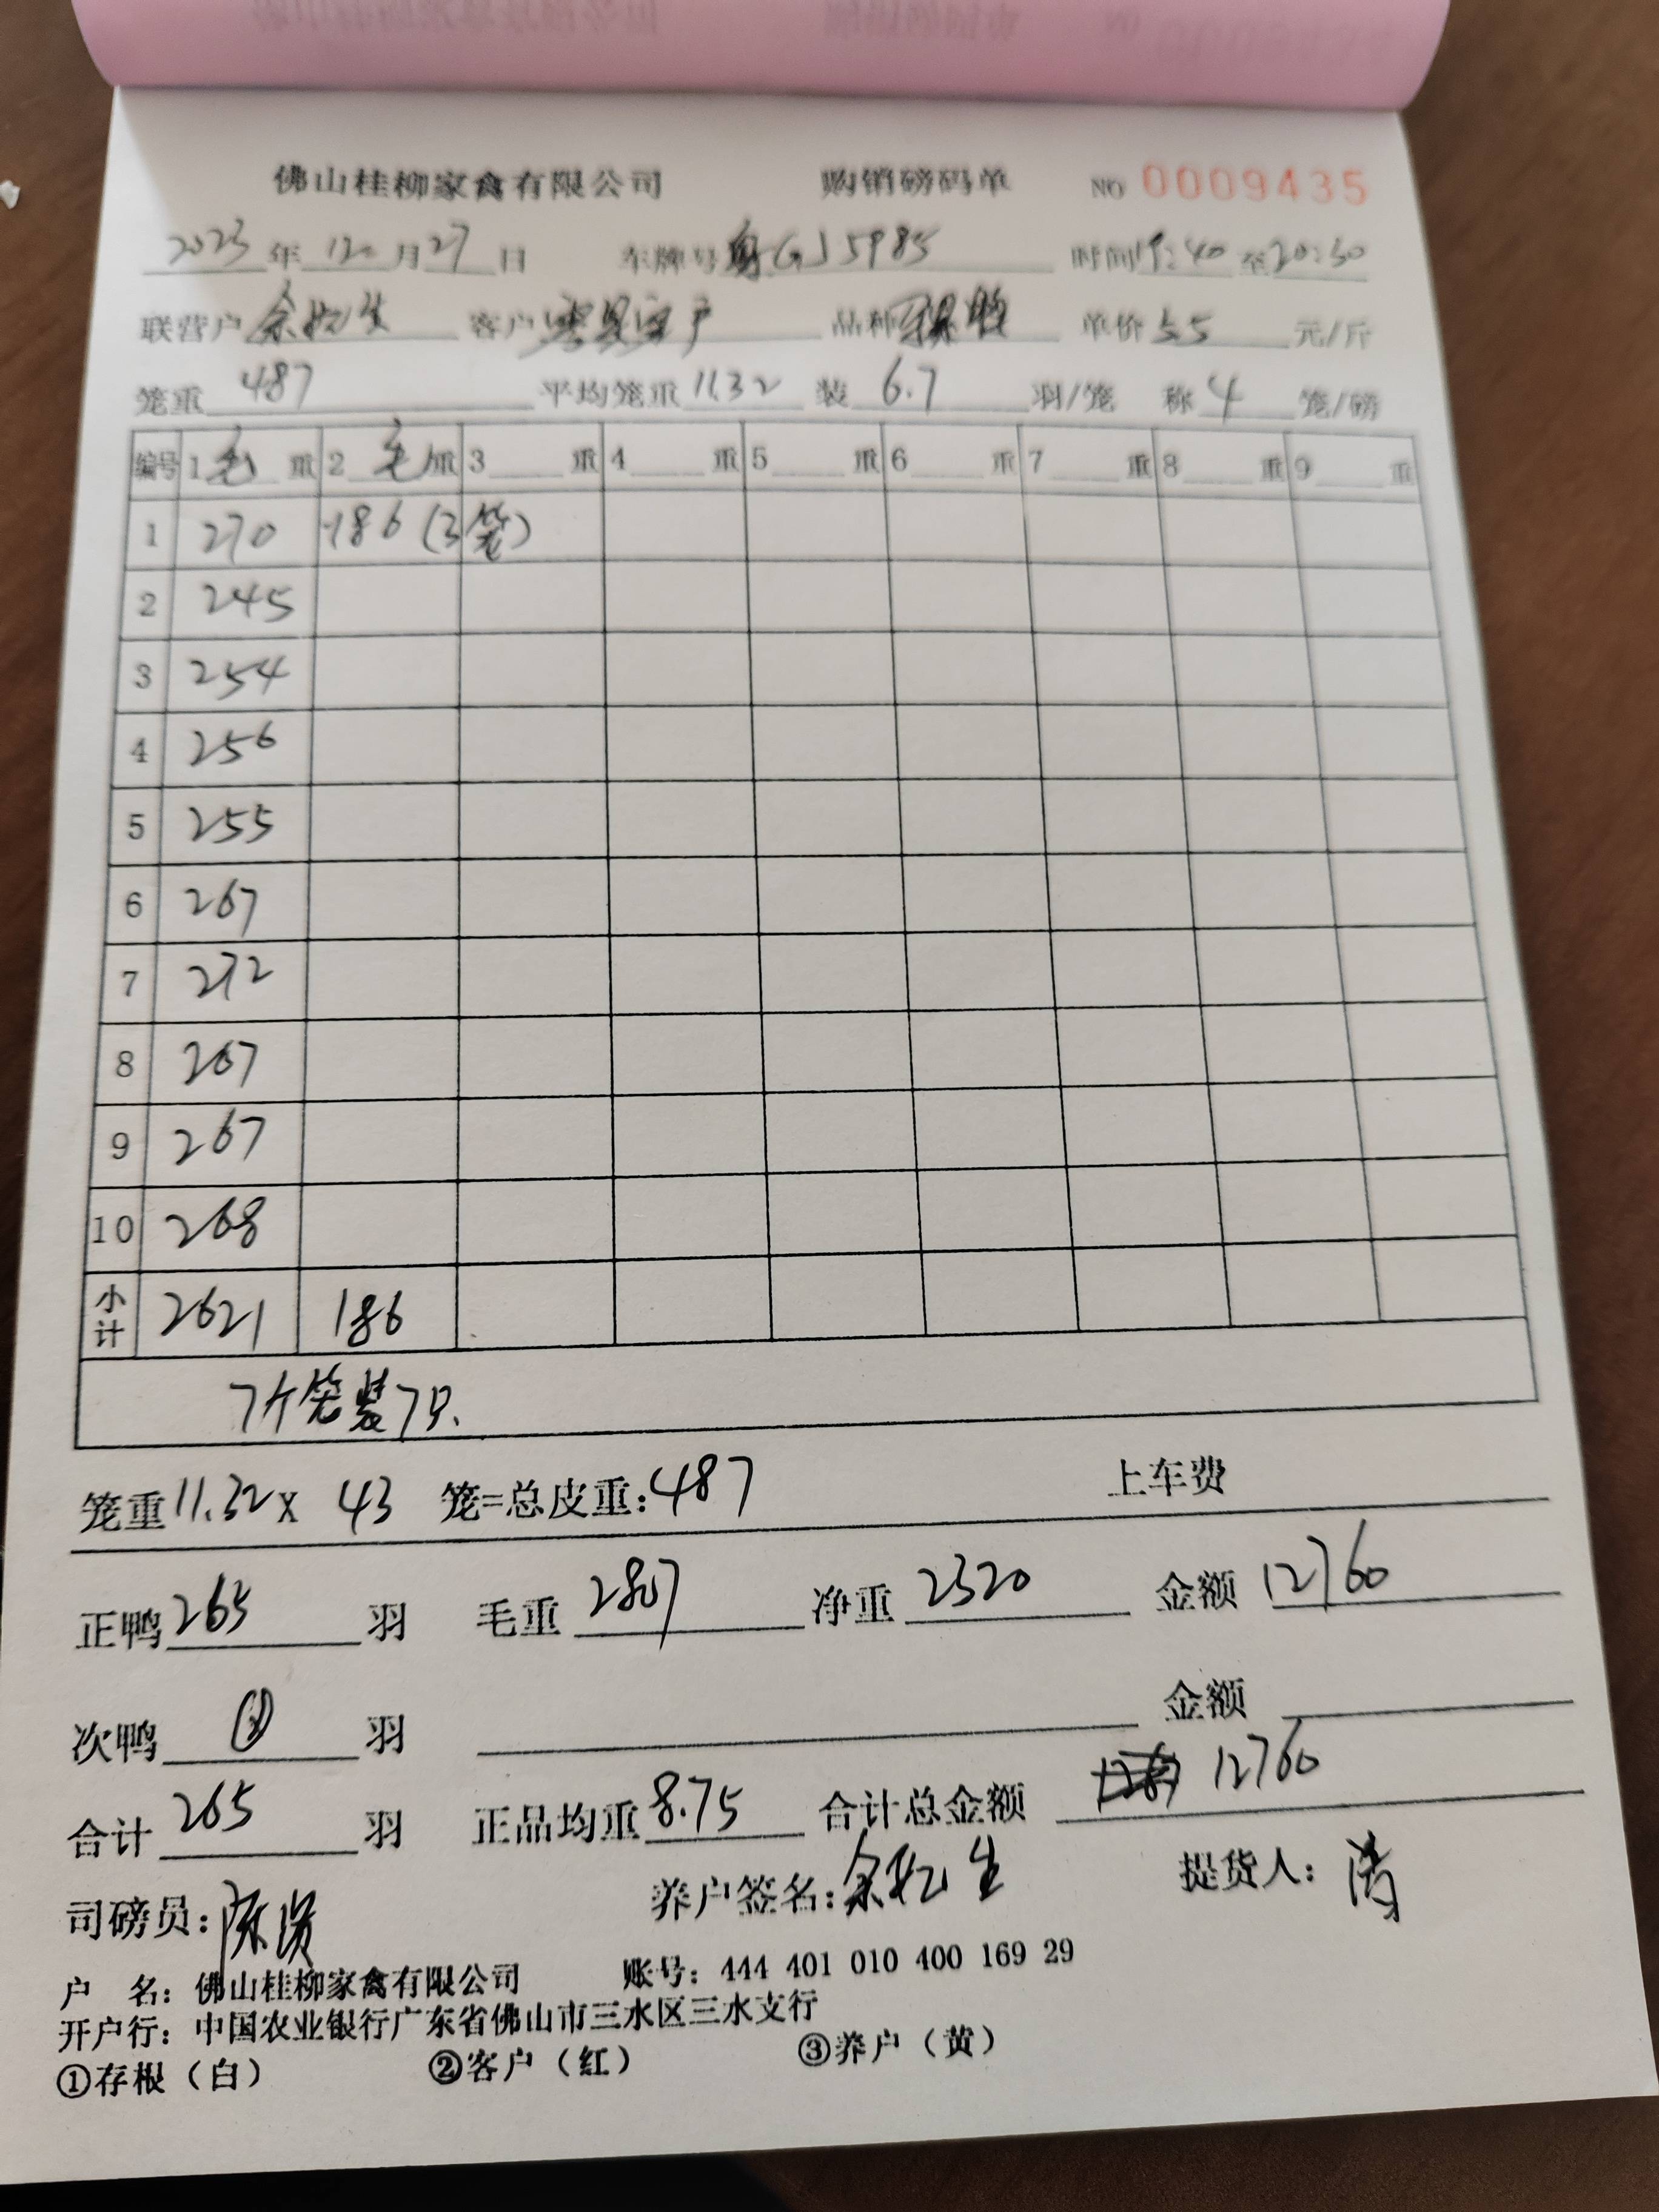 佛山桂柳家禽有限公司 购销磅码单 NO 0009435
2023年12月27日 车牌号粤GJ5985 时间19:40至20:30
联营户余松生 客户 品种 单价5.5元/斤
笼重487 平均笼重11.32 装6.7羽/笼 称4笼/磅
编号 1毛重 2毛重 3重 4重 5重 6重 7重 8重 9重
1 270 186(3笼)
2 245
3 254
4 256
5 255
6 267
7 272
8 267
9 267
10 268
小计 2621 186
7个笼装7只.
笼重11.32X 43 笼=总皮重:487 上车费
正鸭265羽 毛重2807 净重2320 金额12760
次鸭羽 金额
合计265羽 正品均重8.75 合计总金额12760
司磅员:陈 养户签名:余松生 提货人:
户 名:佛山桂柳家禽有限公司 账号:444 401 010 400 169 29
开户行:中国农业银行广东省佛山市三水区三水支行
①存根(白) ②客户(红) ③养户(黄)